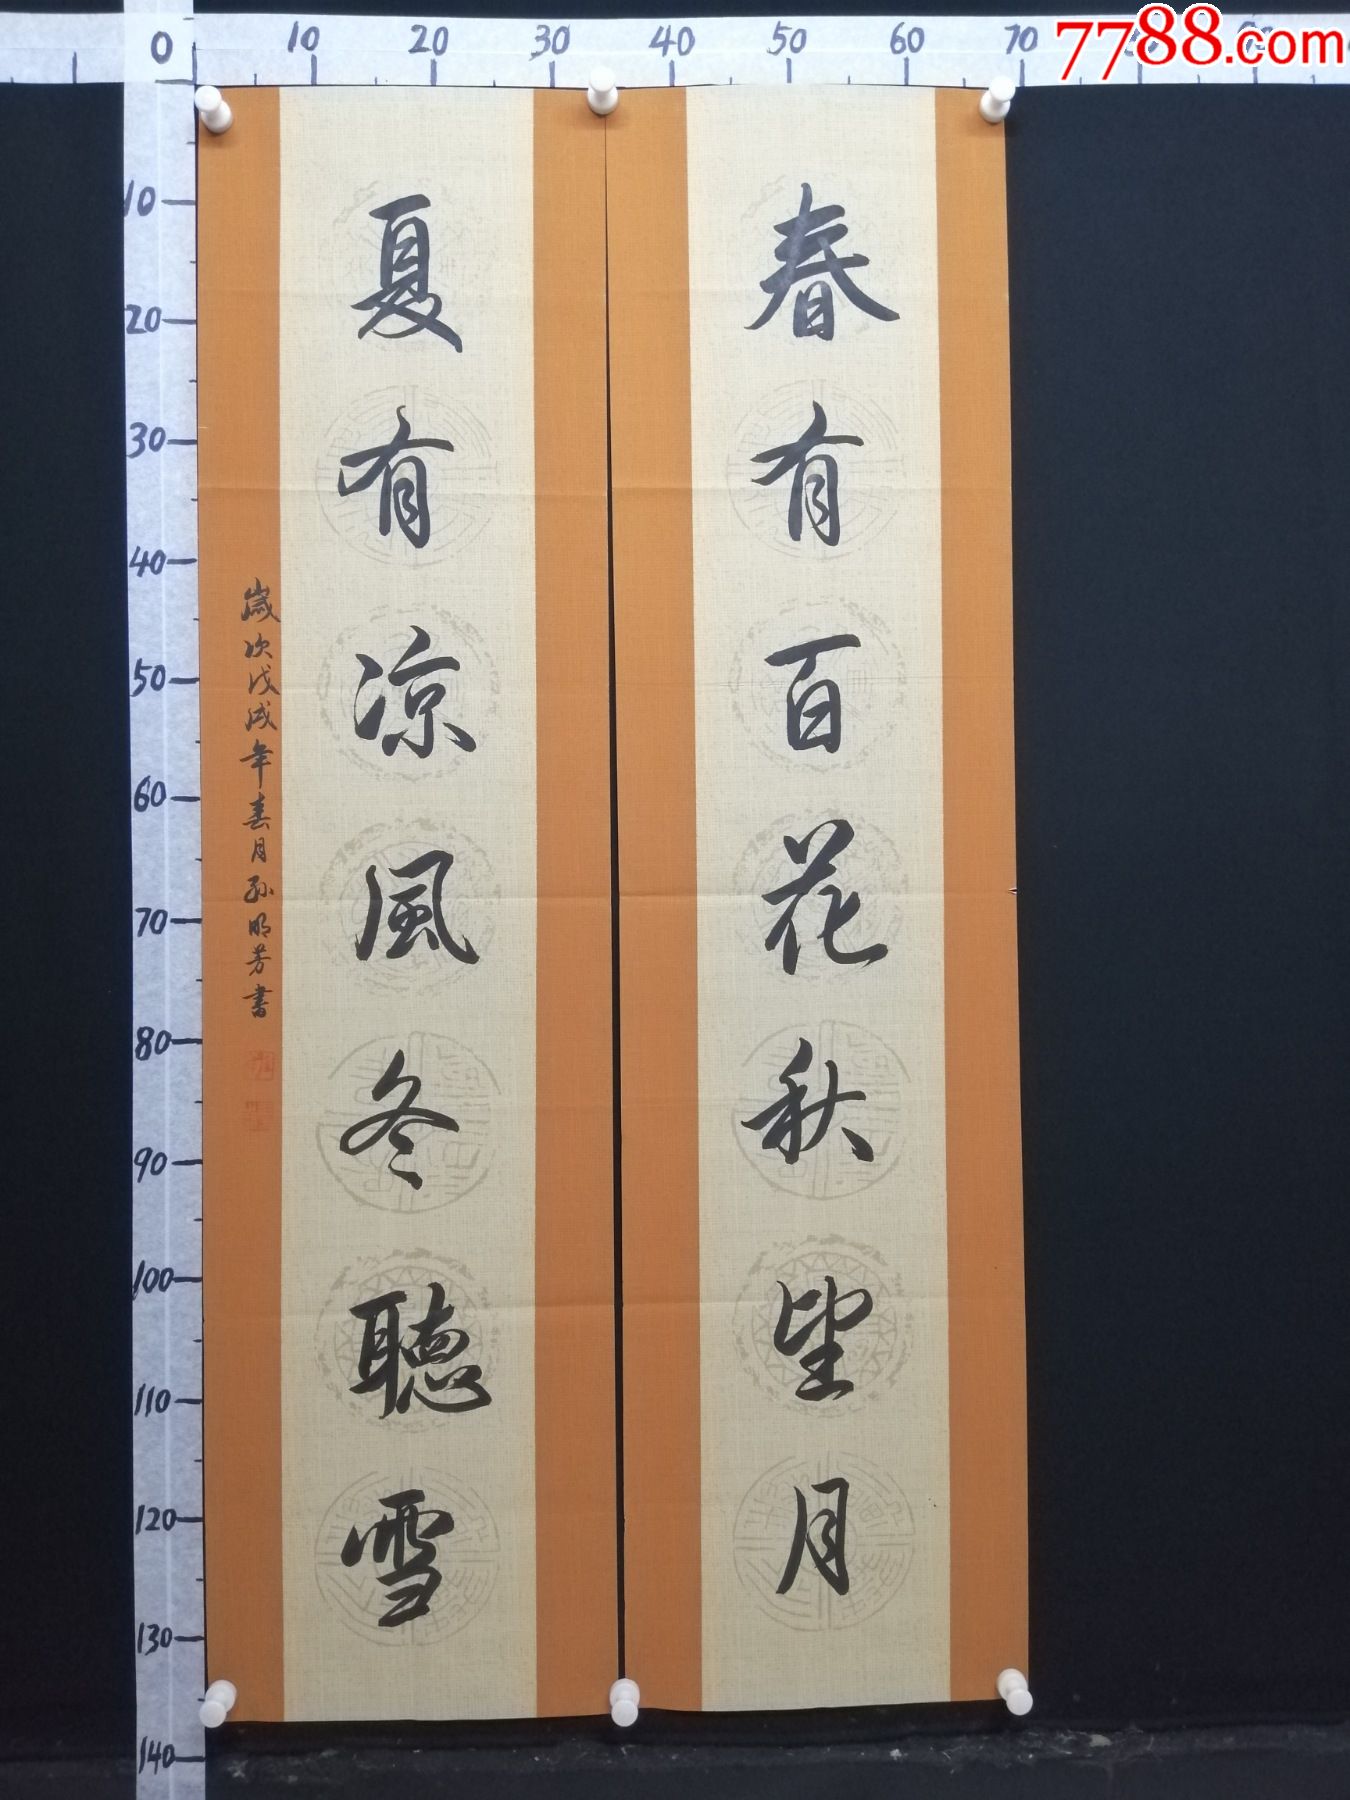 春有百花秋望月
夏有凉風冬聽雪
歲次戊戌年春月孙明芳書
0 10 20 30 40 50 60 70
10
20
30
40
50
60
70
80
90
100
110
120
130
140
7788.com